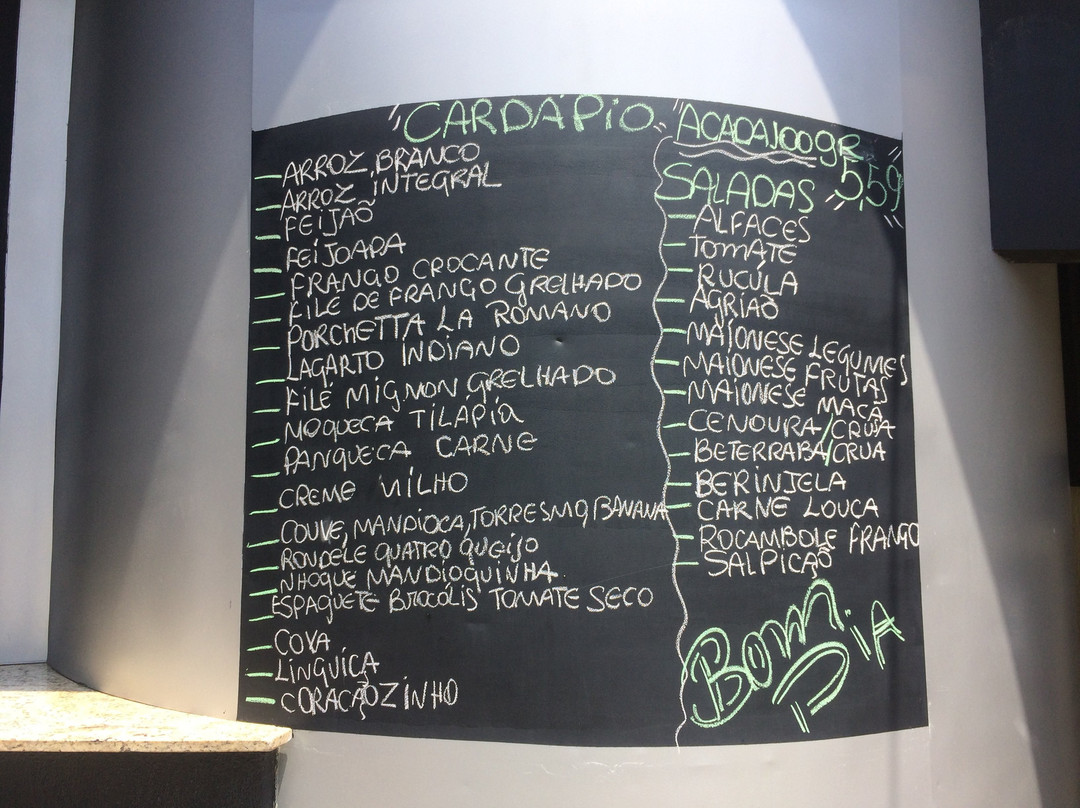 "CARDÁPIO" "ACADA100gR
ARROZ BRANCO
ARROZ INTEGRAL
FEIJAÕ
FEIJOADA
FRANGO CROCANTE
FILE DE FRANGO GRELHADO
PORCHETTA LA ROMANO
LAGARTO INDIANO
FILÉ MIGNON GRELHADO
MOQUECA TILÁPIA
PANQUECA CARNE
CREME MILHO
COUVE, MANDIOCA, TORRESMO, BANANA
RONDELE QUATRO QUEIJO
NHOQUE MANDIOQUINHA
ESPAGUETE BROCÓLIS TOMATE SECO
COVA
LINGUIÇA
CORAÇÃOZINHO
SALADAS 5,59"
ALFACES
TOMATE
RUCÚLA
AGRIAÕ
MAIONESE LEGUMES
MAIONESE FRUTAS
MAIONESE MAÇA
CENOURA/CRUA
BETERRABA/CRUA
BERINJELA
CARNE LOUCA
ROCAMBOLE FRANGO
SALPICÃO
BOM DIA